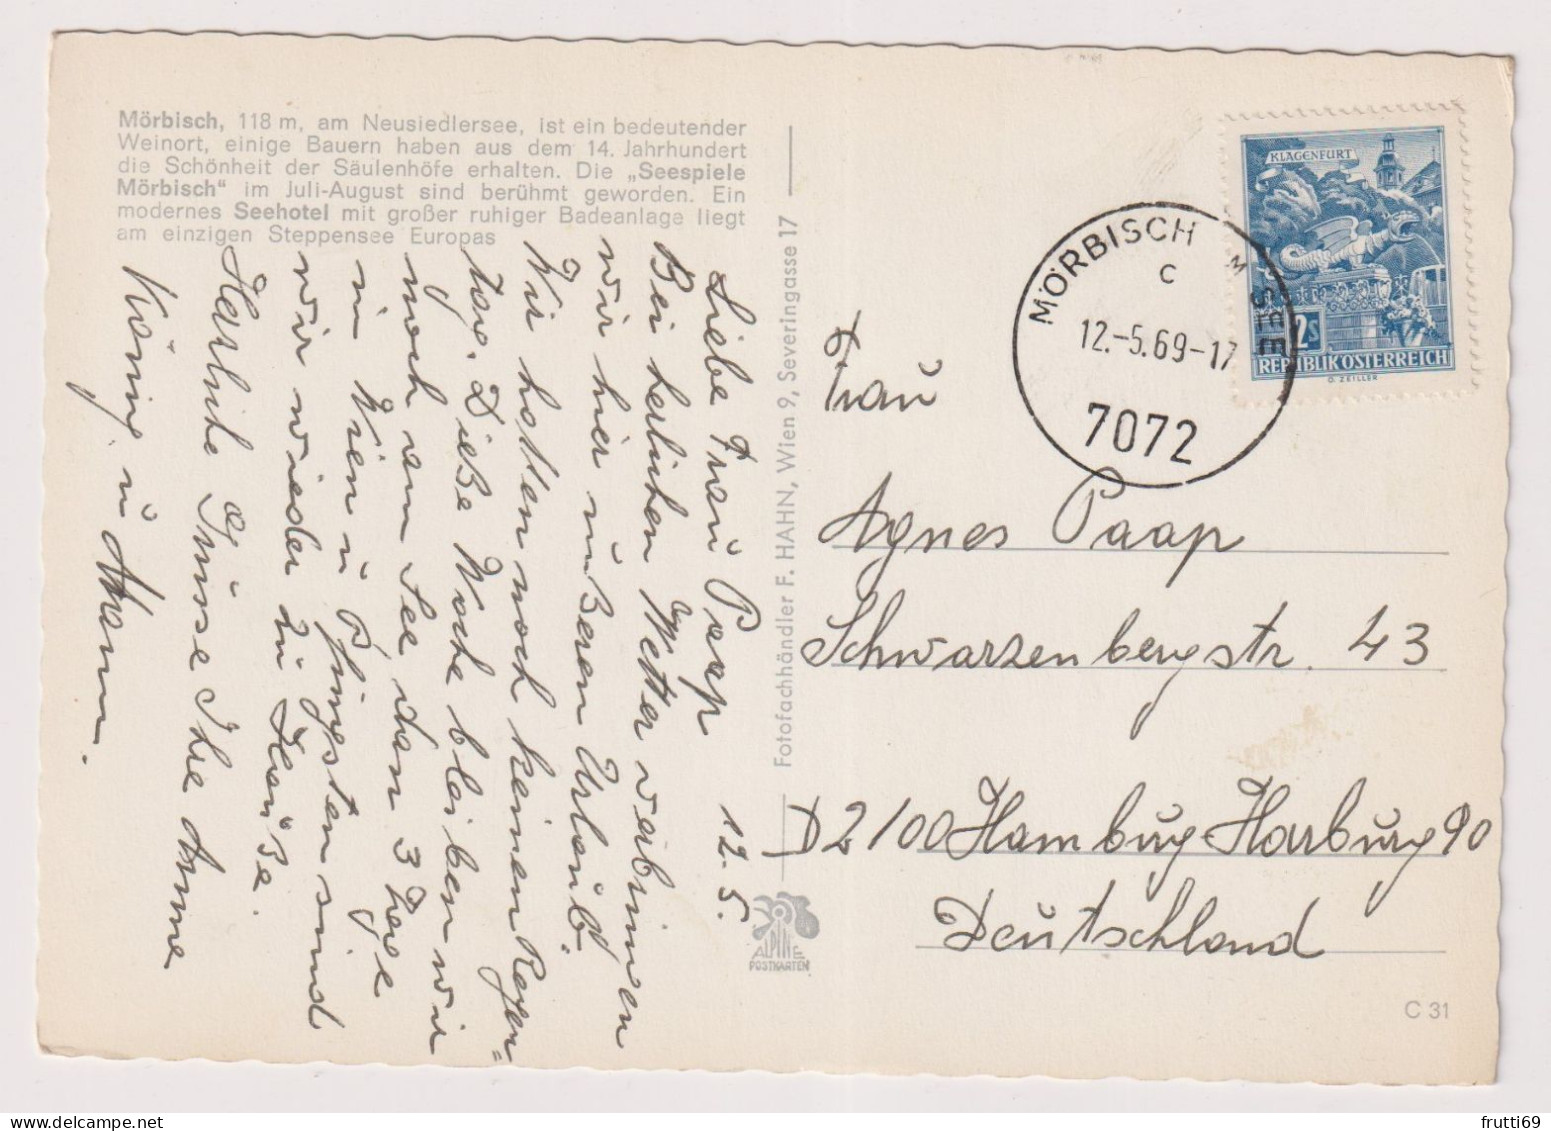 Mörbisch, 118 m, am Neusiedlersee, ist ein bedeutender
Weinort, einige Bauern haben aus dem 14. Jahrhundert
die Schönheit der Säulenhöfe erhalten. Die „Seespiele
Mörbisch" im Juli-August sind berühmt geworden. Ein
modernes Seehotel mit großer ruhiger Badeanlage liegt
am einzigen Steppensee Europas
12. 5.
Liebe Frau Paap
Bei herlichen Wetter verbringen
wir hier unßeren Urlaub.
Wir hatten noch keinen Regen=
tag. Dieße Woche bleiben wir
noch am See, dan 3 Tage
in Wien u Pfingsten sind
wir wieder zu Hauße.
Herliche Grüsse Ihre Anne
König, u Mann.
Fotofachhändler F. HAHN, Wien 9, Severingasse 17
ALPINE
POSTKARTEN
KLAGENFURT
2S
REPUBLIK ÖSTERREICH
O. ZEILLER
MÖRBISCH
SEE
C
12.-5.69-17
7072
Frau
Agnes Paap
Schwarzenbergstr. 43
D 2100 Hamburg Harburg 90
Deutschland
C 31
frutti69